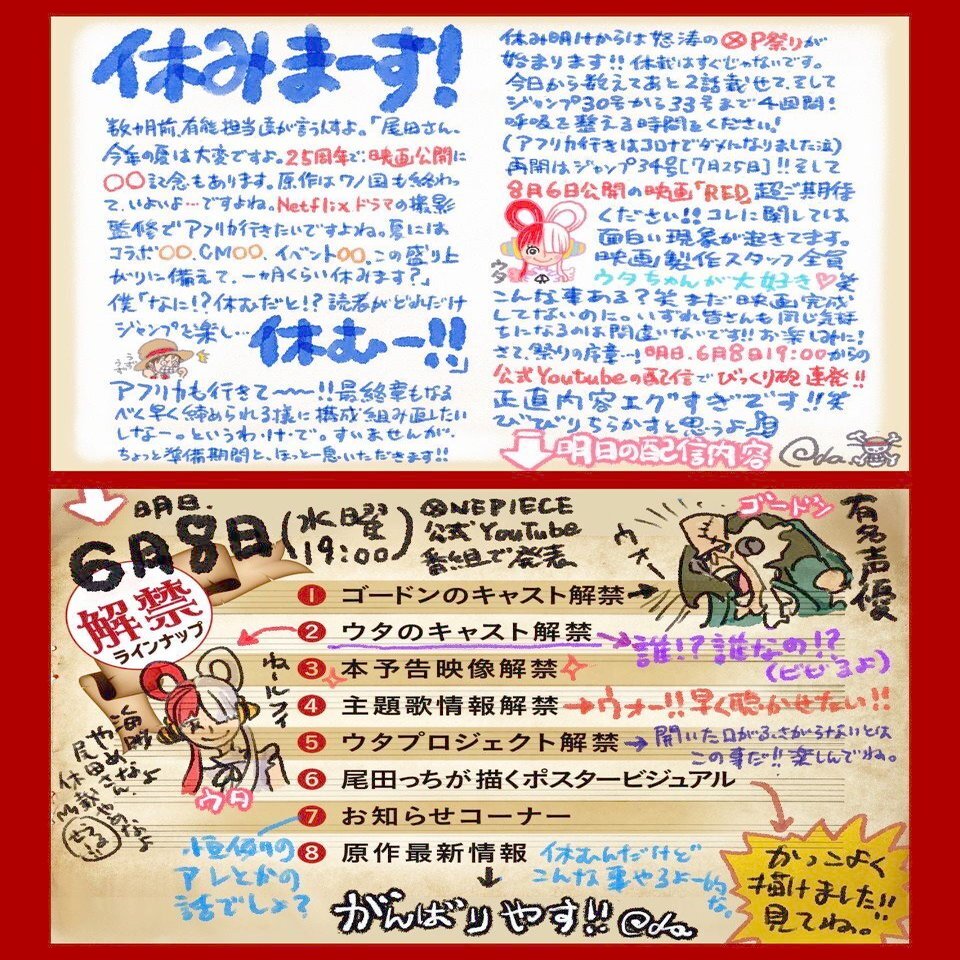 休みまーす!
数カ月前、有能担当達が言うんすよ。「尾田さん、
今年の夏は大変ですよ。25周年で、映画公開に
〇〇記念もあります。原作はワノ国も終わっ
て、いよいよ…ですよね。Netflixドラマの撮影
監修でアフリカ行きたいですよね。夏には
コラボ〇〇、CM〇〇、イベント〇〇。この盛り上
がりに備えて、一カ月くらい休みます?」
僕「なに!?休むだと!?読者がどれだけ
ジャンプを楽し…
休むー!!」
アフリカも行きて〜〜!!最終章もなる
べく早く締められる様に構成組み直したい
しなー。というわ・け・で。すいませんが、
ちょっと準備期間と、ほっと一息いただきます!!
休み明けからは怒涛のOP祭りが
始まります!!休載はすぐじゃないです。
今日から数えてあと2話載せて、そして
ジャンプ30号から33号まで4週間!
呼吸を整える時間をください!
(アフリカ行きはコロナでダメになりました泣)
再開はジャンプ34号[7月25日]!!そして
8月6日公開の映画「RED」超ご期待
ください!!コレに関しては
面白い現象が起きてます。
映画製作スタッフ全員
ウタちゃんが大好き♡笑
ウタ
こんな事ある?笑 まだ映画完成
してないのに。いずれ皆さんも同じ気持
ちになるのは間違いないです!!お楽しみに!
さて、祭りの序章…!明日、6月8日19:00からの
公式Youtubeの配信でびっくり砲連発!!
正直内容エグすぎです!!笑
びびりちらかすと思うよ
明日の配信内容
明日、
6月8日(水曜19:00)
ONEPIECE
公式YouTube
番組で発表
ゴードン
有名声優
ウォー
解禁
ラインナップ
1 ゴードンのキャスト解禁→
2 ウタのキャスト解禁→誰!?誰なの!?
(ビビるよ)
3 本予告映像解禁
4 主題歌情報解禁→ウォー!!早く聴かせたい!!
5 ウタプロジェクト解禁→開いた口がふさがらないとは
この事だ!!楽しんでね。
6 尾田っちが描くポスタービジュアル
7 お知らせコーナー
8 原作最新情報
ねールフィ
ウタ
海賊
やめなよ
尾田さん、
休載やめなよ
恒例の
アレとかの
話でしょ?
休むんだけど
こんな事やるよー的な。
かっこよく
描けました!!
見てね。
がんばりやす!!